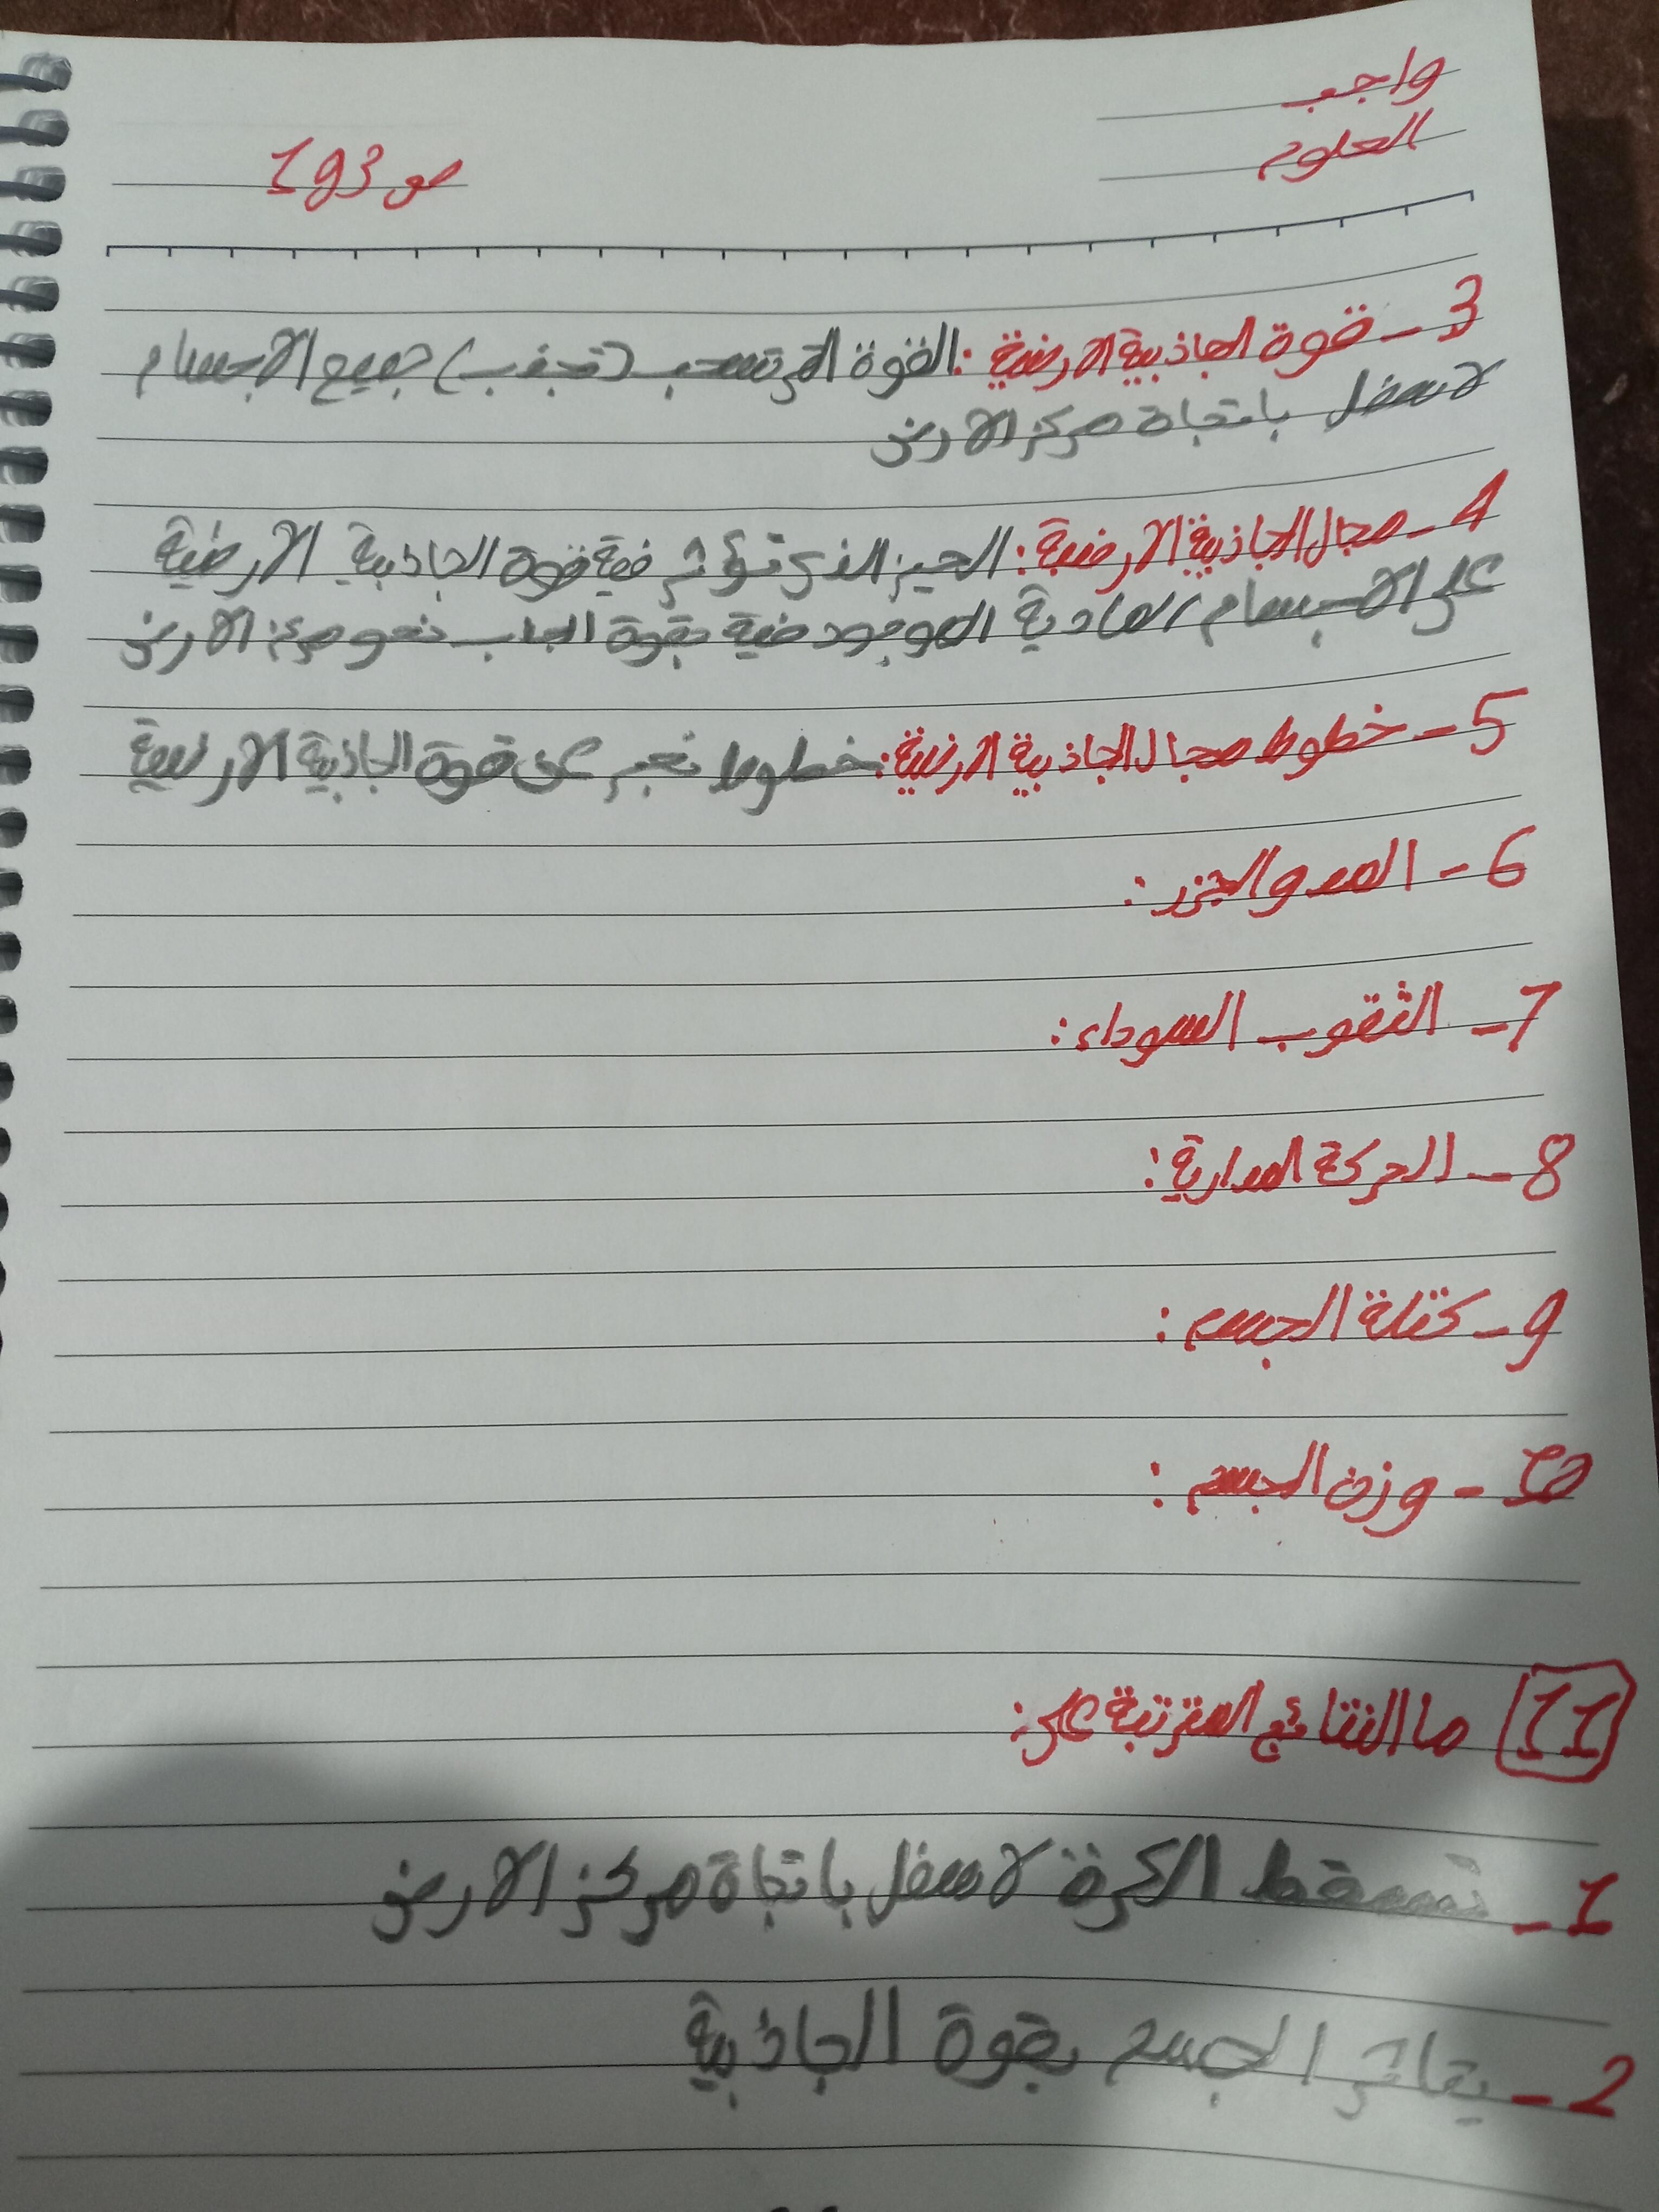 واجب
العلوم
ص 193
3 - قوة الجاذبية الارضية : القوة التي تسحب (تجذب) جميع الاجسام
لاسفل باتجاة مركز الارض
4 - مجال الجاذبية الارضية : الحيز الذي تؤثر فية قوة الجاذبية الارضية
على الاجسام المادية الموجود فية بقوة نحو مركز الارض
5 - خطوط مجال الجاذبية الارضية : خطوط تعبر عن قوة الجاذبية الارضية
6 - المد والجزر :
7 - الثقوب السوداء :
8 - الحركة المدارية :
9 - كتلة الجسم :
10 - وزن الجسم :
11 ما النتائج المترتبة على :
1 - تسقط الكرة لاسفل باتجاة مركز الارض
2 - الجسم بقوة الجاذبية